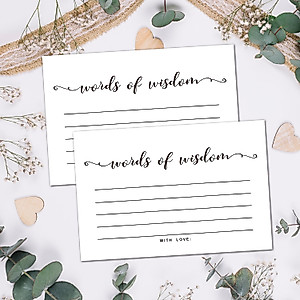 words of wisdom
words of wisdom
WITH LOVE: